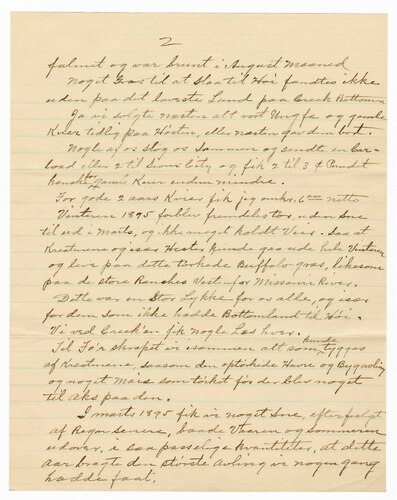 2
falmet og var brunt i August Maaned
Noget Græs til at Slaa til Høi fandtes ikke
uden paa det laveste Land paa Creek Bottomen
Ja vi solgte næsten alt vort Ungfæ og gamle
Kuer tidlig paa Høsten, eller næsten gav dem bort.
Nogle af os slog os sammen og sendte en Car-
load eller 2 til Sioux City og fik 2 til 3 ¢ Pundet
kanske for gamle Kuer endnu mindre.
For gode 2 aars Kvier fik jeg omkr. 6 netto
Vinteren 1895 forløb fremdeles tør, uden Sne
til ud i Marts, og ikke meget koldt Veir. Saa at
Kreaturene og især Hester kunde gaa ude hele Vinteren
og leve paa dette tørkede Buffalo græs, ligesom
paa de store Ranches Vestenfor Missouri River.
Dette var en Stor Lykke for os alle, og især
for dem som ikke hadde Bottomland til Høi.
Vi ved Creek'en fik Nogle Læs hver.
Til Fo'r skrapet vi isammen alt som kunde tygges
af Kreaturene, saasom den optørkede Havre og Byg avling
og noget Mais som tørket før der blev noget
til Aks paa den.
I marts 1895 fik vi noget Sne, efterfulgt
af Regn senere, baade Vaaren og Sommeren
udover, i saa passelige kvantiteter, at dette
aar bragte den største Avling vi nogen gang
hadde faat.